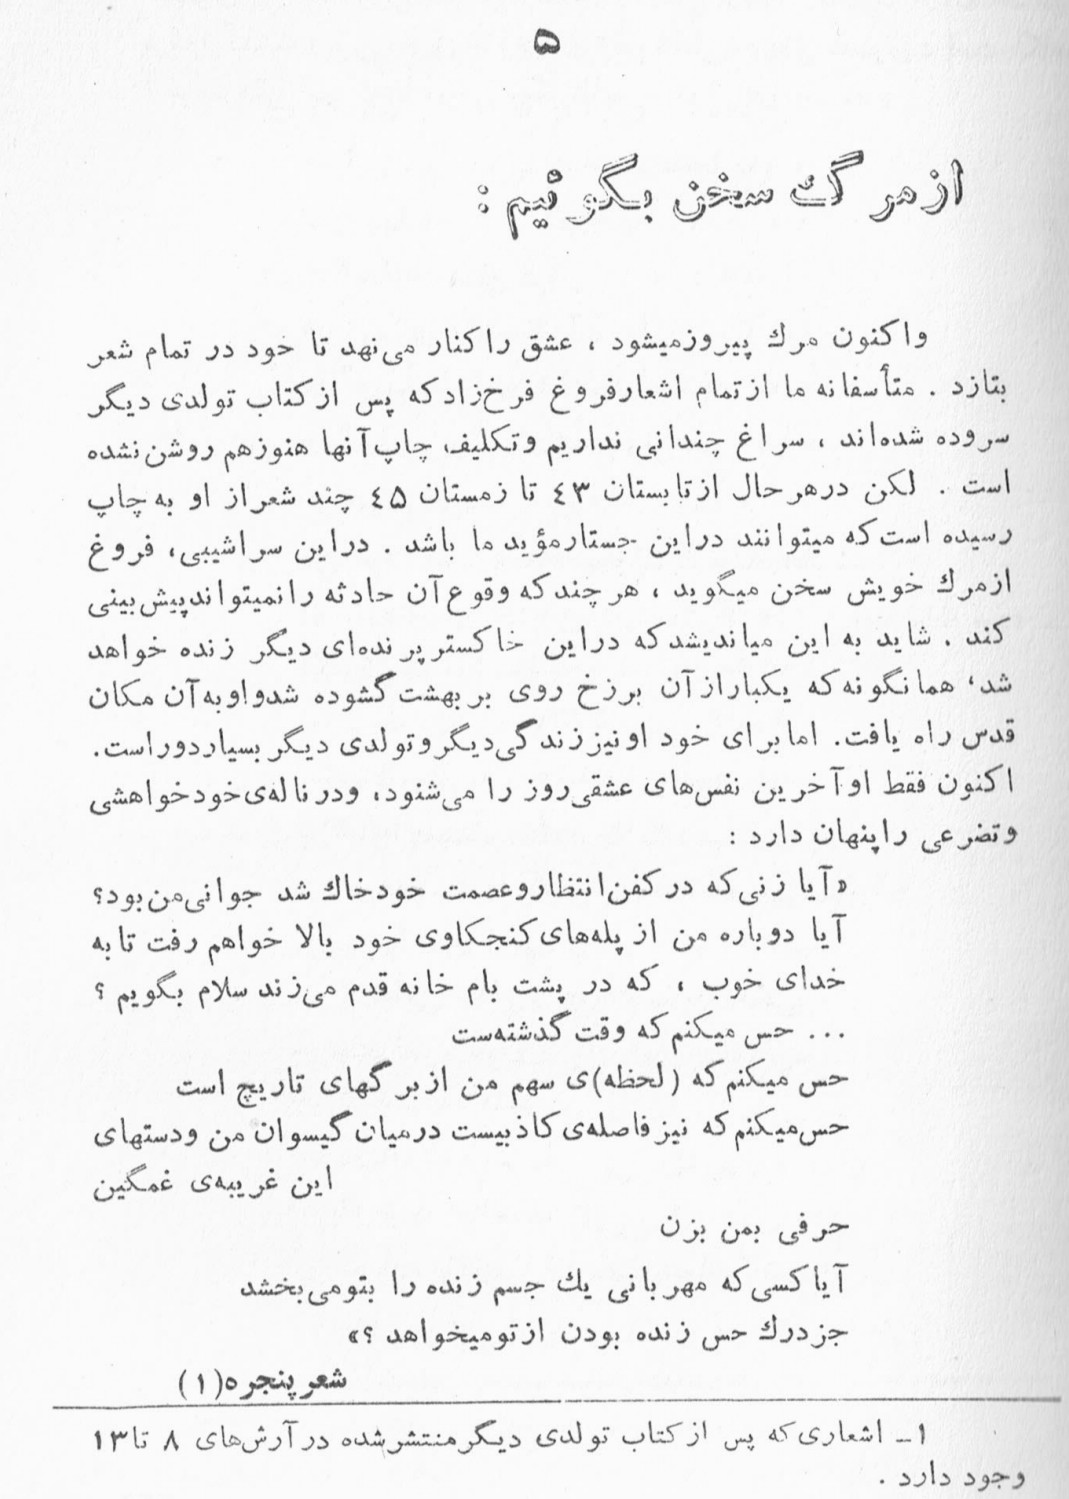 ۵
از مرگ سخن بگوئیم :
واکنون مرك پیروزمیشود ، عشق را کنار می‌نهد تا خود در تمام شعر
بتازد . متأسفانه ما از تمام اشعار فروغ فرخ‌زاد که پس از کتاب تولدی دیگر
سروده شده‌اند ، سراغ چندانی نداریم وتکلیف چاپ آنها هنوزهم روشن نشده
است . لکن درهر حال از تابستان ٤٣ تا زمستان ٤۵ چند شعراز او به چاپ
رسیده است که میتوانند دراین جستارمؤید ما باشد . دراین سراشیبی، فروغ
ازمرك خویش سخن میگوید ، هر چند که وقوع آن حادثه را نمیتواند پیش‌بینی
کند . شاید به این میاندیشد که دراین خاکستر پرنده‌ای دیگر زنده خواهد
شد، همانگونه که یکباراز آن برزخ روی بر بهشت گشوده شدواو به آن مکان
قدس راه یافت. اما برای خود او نیز زندگی دیگر وتولدی دیگر بسیار دور است.
اکنون فقط او آخرین نفس‌های عشقی‌روز را می‌شنود، ودر ناله‌ی خود خواهشی
وتضرعی را پنهان دارد :
«آیا زنی که در کفن انتظار وعصمت خود خاك شد جوانی من بود؟
آیا دوباره من از پله‌های کنجکاوی خود بالا خواهم رفت تا به
خدای خوب ، که در پشت بام خانه قدم می‌زند سلام بگویم ؟
... حس میکنم که وقت گذشته‌ست
حس میکنم که (لحظه)ی سهم من از برگهای تاریخ است
حس میکنم که نیز فاصله‌ی کاذبیست درمیان گیسوان من ودستهای
این غریبه‌ی غمگین
حرفی بمن بزن
آیا کسی که مهربانی یك جسم زنده را بتو می‌بخشد
جز درك حس زنده بودن از تو میخواهد ؟»
شعر پنجره(١)
١ـ اشعاری که پس از کتاب تولدی دیگر منتشر شده در آرش‌های ٨ تا ١٣
وجود دارد .